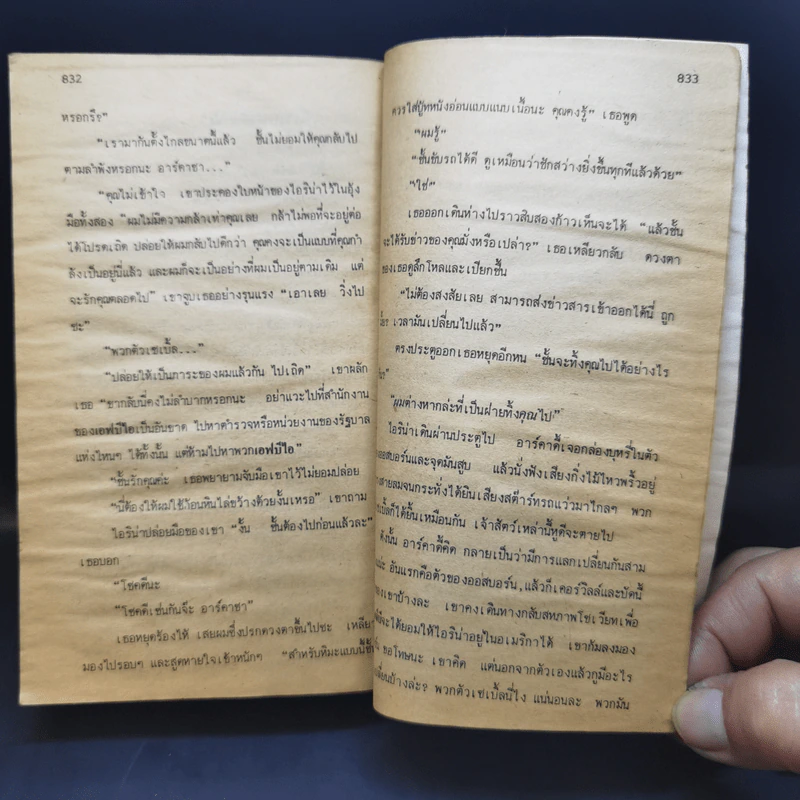 832
หรอกรึ?"
"เรามากันตั้งไกลขนาดนี้แล้ว ชั้นไม่ยอมให้คุณกลับไป
ตามลำพังหรอกนะ อาร์คาชา..."
"คุณไม่เข้าใจ เขาประคองใบหน้าของไอริน่าไว้ในอุ้ง
มือทั้งสอง "ผมไม่มีความกล้าเท่าคุณเลย กล้าไม่พอที่จะอยู่ต่อ
ได้โปรดเถิด ปล่อยให้ผมกลับไปดีกว่า คุณคงจะเป็นแบบที่คุณกำ
ลังเป็นอยู่นี่แล้ว และผมก็จะเป็นอย่างที่ผมเป็นอยู่ตามเดิม แต่
จะรักคุณตลอดไป" เขาจูบเธออย่างรุนแรง "เอาเลย วิ่งไป
ซะ"
"พวกตัวเซเบิ้ล..."
"ปล่อยให้เป็นภาระของผมแล้วกัน ไปเถิด" เขาผลัก
เธอ "ขากลับนี่คงไม่ลำบากหรอกนะ อย่าแวะไปที่สำนักงาน
ของเอฟบีไอเป็นอันขาด ไปหาตำรวจหรือหน่วยงานของรัฐบาล
แห่งไหนๆ ได้ทั้งนั้น แต่ห้ามไปหาพวกเอฟบีไอ"
"ชั้นรักคุณค่ะ เธอพยายามจับมือเขาไว้ไม่ยอมปล่อย
"นี่ต้องให้ผมใช้ก้อนหินไล่ขว้างด้วยงั้นเหรอ" เขาถาม
ไอริน่าปล่อยมือของเขา "งั้น ชั้นต้องไปก่อนแล้วละ"
เธอบอก
"โชคดีนะ
"โชคดีเช่นกันจ๊ะ อาร์คาชา"
เธอหยุดร้องไห้ เสยผมซึ่งปรกดวงตาขึ้นไปซะ เหลียว
มองไปรอบๆ และสูดหายใจเข้าหนักๆ "สำหรับหิมะแบบนี้ชั้
833
ควรใส่บู๊ทหนังอ่อนแบบแนบเนื้อนะ คุณคงรู้" เธอพูด
"ผมรู้"
"ชั้นขับรถได้ดี ดูเหมือนว่าชักสว่างยิ่งขึ้นทุกทีแล้วด้วย"
"ใช่"
เธอออกเดินห่างไปราวสิบสองก้าวเห็นจะได้ "แล้วชั้น
จะได้รับข่าวของคุณมั่งหรือเปล่า?" เธอเหลียวกลับ ดวงตา
ของเธอดูลึกโหลและเปียกชื้น
"ไม่ต้องสงสัยเลย สามารถส่งข่าวสารเข้าออกได้นี่ ถูก
เวลามันเปลี่ยนไปแล้ว"
ตรงประตูออกเธอหยุดอีกหน "ชั้นจะทิ้งคุณไปได้อย่างไร
"ผมต่างหากล่ะที่เป็นฝ่ายทิ้งคุณไป"
ไอริน่าเดินผ่านประตูไป อาร์คาดี้เจอกล่องบุหรี่ในตัว
ออสบอร์นและจุดมันสูบ แล้วนั่งฟังเสียงกิ่งไม้ไหวพริ้วอยู่
สายลมจนกระทั่งได้ยินเสียงสต๊าร์ทรถแว่วมาไกลๆ พวก
เบิ้ลก็ได้ยินเหมือนกัน เจ้าสัตว์เหล่านี้หูดีจะตายไป
ดังนั้น อาร์คาดี้คิด กลายเป็นว่ามีการแลกเปลี่ยนกันสาม
อันแรกคือตัวของออสบอร์น,แล้วก็เคอร์วิลล์และบัดนี้
ของเขาบ้างละ เขาคงเดินทางกลับสหภาพโซเวียทเพื่อ
จะได้ยอมให้ไอริน่าอยู่ในอเมริกาได้ เขาก้มลงมอง
ขอโทษนะ เขาคิด แต่นอกจากตัวเองแล้วกูมีอะไร
เปลี่ยนบ้างล่ะ? พวกตัวเซเบิ้ลนี่ไง แน่นอนละ พวกมัน